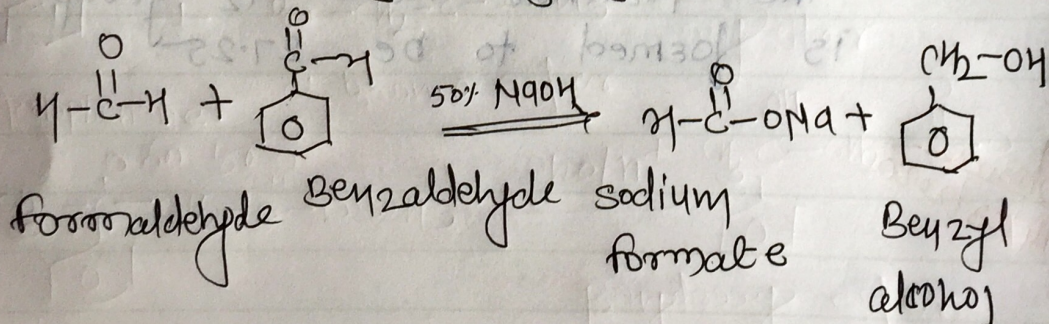 H-C-H + C-H 50% NaOH H-C-ONa + CH2-OH
O O O
formaldehyde Benzaldehyde sodium formate Benzyl alcohol